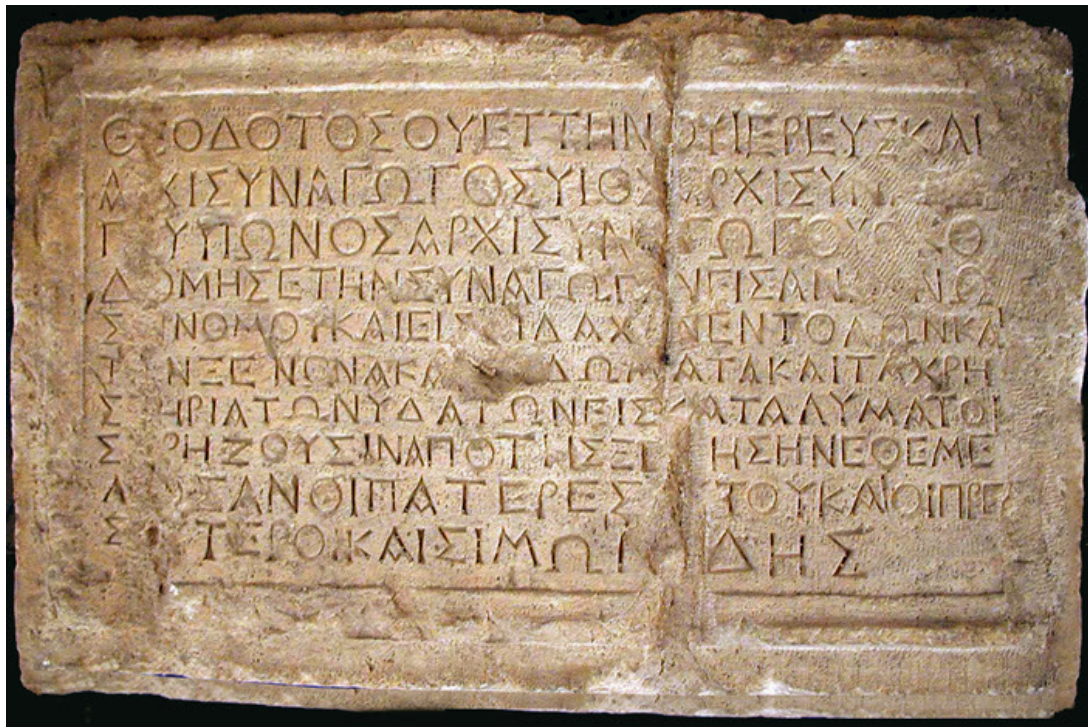 ΘΕΟΔΟΤΟΣΟΥΕΤΤΗΝΟΥΙΕΡΕΥΣΚΑΙ
ΑΡΧΙΣΥΝΑΓΩΓΟΣΥΙΟΣΑΡΧΙΣΥΝ
Γ ΥΥΙΩΝΟΣΑΡΧΙΣΥΝ ΓΩΓΟΥ Ο
Δ ΟΜΗΣΕΤΗΝΣΥΝΑΓΩΓ ΝΕΙΣΑΝ ΝΩ
Σ ΝΟΜΟΥΚΑΙΕΙΣ ΙΔΑΧ ΝΕΝΤΟΛΩΝΚΑ
Τ ΝΞΕΝΩΝΑΚΑ ΔΩΜΑΤΑΚΑΙΤΑΧΡΗ
Σ ΗΡΙΑΤΩΝΥΔΑΤΩΝΕΙΣΚΑΤΑΛΥΜΑΤΟΙ
Σ ΡΗΖΟΥΣΙΝΑΠΟΤΗΣΞΕ ΗΣΗΝΕΘΕΜΕ
Λ ΣΑΝΟΙΠΑΤΕΡΕΣ ΤΟΥΚΑΙΟΙΠΡΕ
Σ ΤΕΡΟΙΚΑΙΣΙΜΩΝ ΔΗΣ